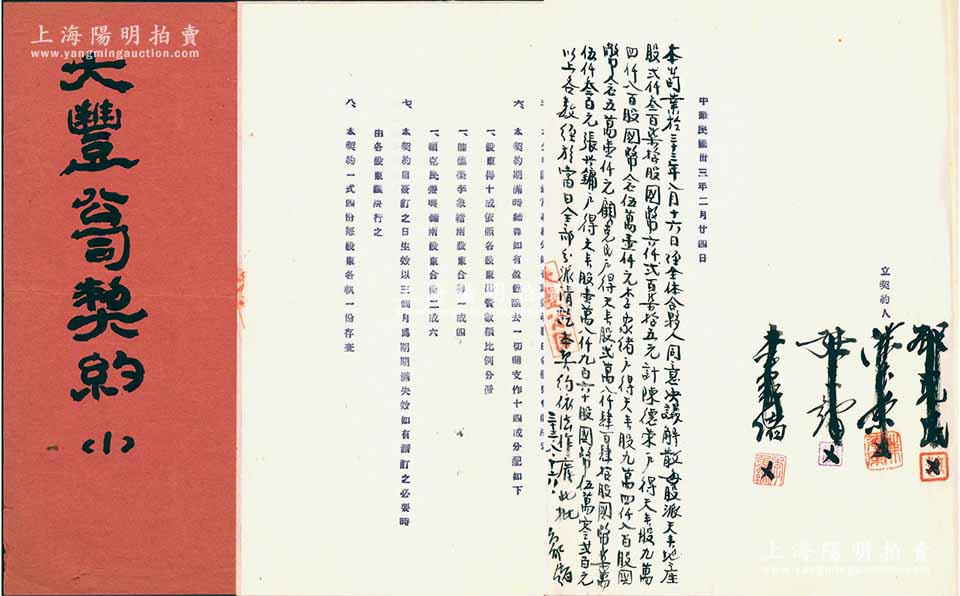 上海陽明拍賣
www.yangmingauction.com
大豐公司契約
(1)
六、本契約期滿時結算如有盈餘除去一切開支作十四成分配如下
一、股東得十成依照各股東出資數額比例分潑
一、陳德榮李象緒兩股東合得一成四
一、顧克民張興鏞兩股東合得二成六
七、本契約自簽訂之日生效以三個月為期期滿失效如有續訂之必要時
由各股東議決行之
八、本契約一式四份每股東各執一份存查
中華民國卅三年二月廿四日
立契約人
本商業於三十三年八月十六日經全体合夥人同意決議解散每股派天丰地產
股弍仟叁百柒拾股國幣六仟弍百柒拾五元計陳德榮戶得天丰股九萬
四仟八百股國幣念伍萬壹仟元李象緒戶得天丰股九萬四仟八百股國
幣念五萬壹仟元顧克民戶得天丰股弍萬八仟肆百肆拾股國幣柒萬
伍仟叁百元張世鏞戶得天丰股壹萬八仟九百六十股國幣伍萬零弍百元
以上各數經於當日全部分派清訖本契約依法作廢此批
三三、八、十六
上海陽明拍賣
www.yangmingauction.com